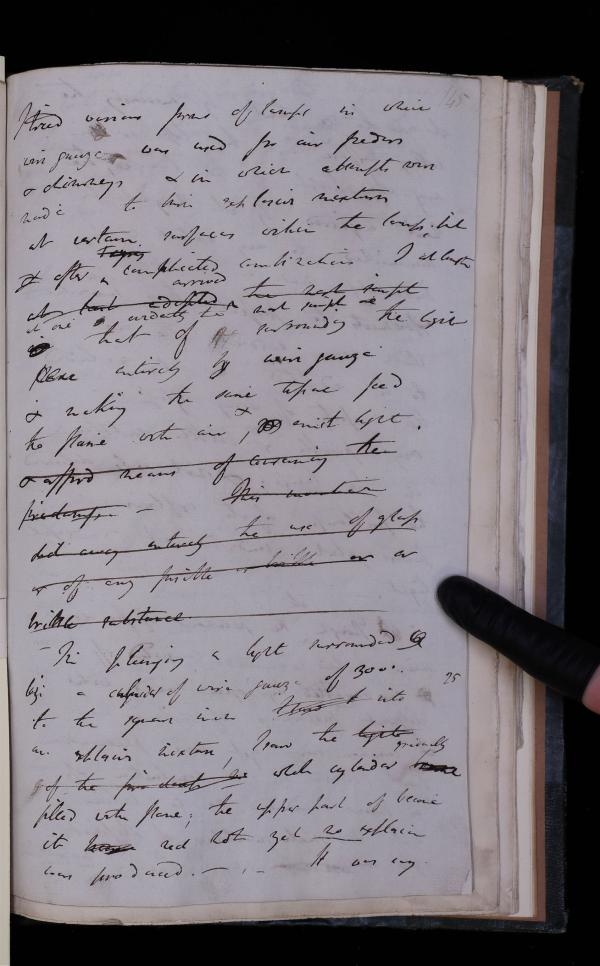 145
I tried various forms of lamps in which
wire gauze was used for air feeders
& chimneys & in which attempts were
made to burn explosive mixtures
at certain surfaces within the lamp, but
& after complicated combinations I at last
at last adopted arrived the most simple
at one evidently the most simple
that of surrounding the light
flame entirely by wire gauze
& making the same tissue feed
the flame with air, & emit light.
& afford means of the
firedamp – This invention
did away entirely the use of glass
or of any brittle or
brittle substance
– In plunging a light surrounded
by a cylinder of wire gauze of 300
25
to the square inch into
an explosive mixture, I saw the light
gradually
of the fire damp whole cylinder become
filled with flame; the upper part of became
it red hot yet no explosion
was produced. – It was my